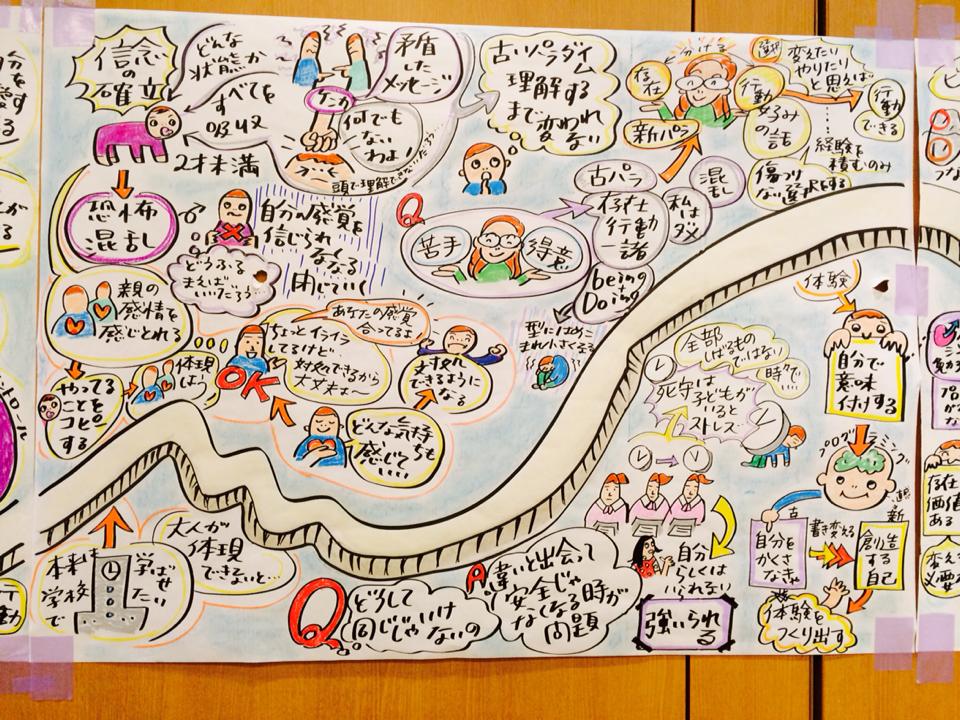 信念
の
確立
どんな
状態か
すべてを
吸収
2才未満
矛盾
した
メッセージ
たか
何でも
ない
わよ!
頭で理解できないだろう…
古いパラダイム
理解する
まで変われ
ない
分ける
存在
新パラ
行動
変えたり
やりたりと思えば
行動
できる
好みの
の話
経験を
積むのみ
傷つか
ない選択をする
恐怖
混乱
自分の感覚を
信じられ
なくなる
閉じていく
どうふる
まえばいいだろう
Q
苦手
得意
古パラ
存在
行動
一諸
being
Doing
混乱
私は
ダメ
型にはめこ
まれ小さくなる
親の
感情を
感じとれる
やってる
ことを
コピー
する
体現
しよう
OK
ちょっとイライラ
してるけど、
対処できるから
大丈夫よ~
あなたの感覚
合ってるよ
対処
できるように
なる
どんな気持ちも
感じて
いい
全部
しばるもの
ではない
死守は
子どもが
いると
ストレス
体験
自分で
意味
付けする
プログラミング
古
自分を
かくさ
なきゃ
書き変える
新
創造
する
自己
体験を
つくり出す
自分
らしくは
いられない
強いられ
る
本料
学校
で
学ば
せ
たい
大人が
体現
できないと…
Q
どうして
同じじゃ
いけ
ないの
A
違いと出会って
安全じゃ
なくなる時が
問題